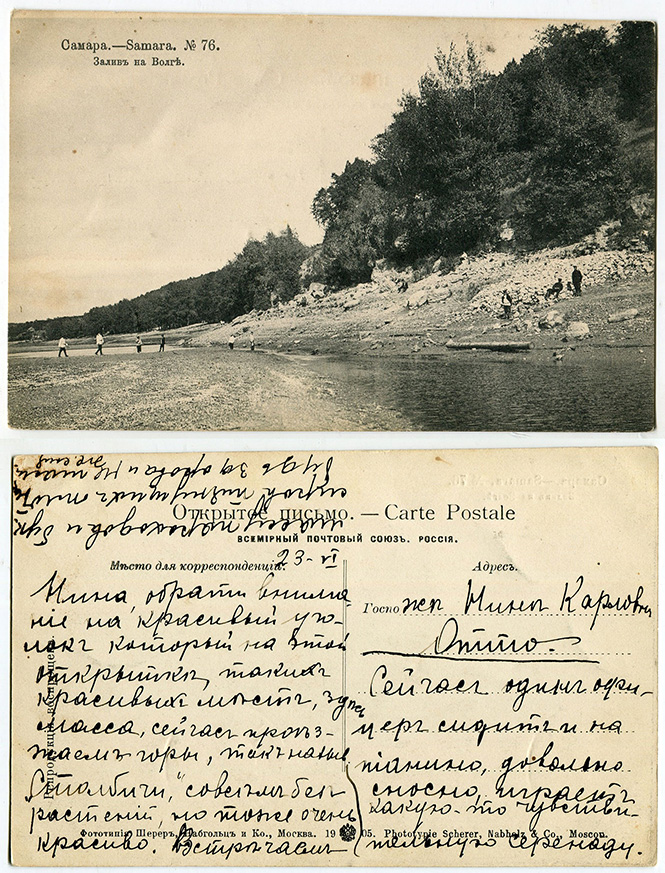 Самара.—Samara. № 76.
Заливъ на Волгѣ.
Открытое письмо. — Carte Postale
ВСЕМІРНЫЙ ПОЧТОВЫЙ СОЮЗЪ. РОССІЯ.
Мѣсто для корреспонденціи.
23-VI
Нина, обрати внима-
ніе на красивый уго-
локъ который на этой
открыткѣ, такихъ
красивыхъ мѣстъ, здѣсь
масса, сейчасъ проѣз-
жаемъ горы, такъ назыв.
„Столбичи," совсѣмъ безъ
растеній, но тоже очень
красиво. Встрѣчаемъ
массу пароходовъ и бук
Адресъ.
Госпо жѣ Нинѣ Карловнѣ
Отто.
Сейчасъ одинъ офи-
церъ сидитъ и на
піанино, довольно
сносно, играетъ
какую-то чувстви-
тельную серенаду.
Фототипія Шереръ, Набгольцъ и Ко., Москва. 1905. Phototypie Scherer, Nabholz & Co., Moscou.